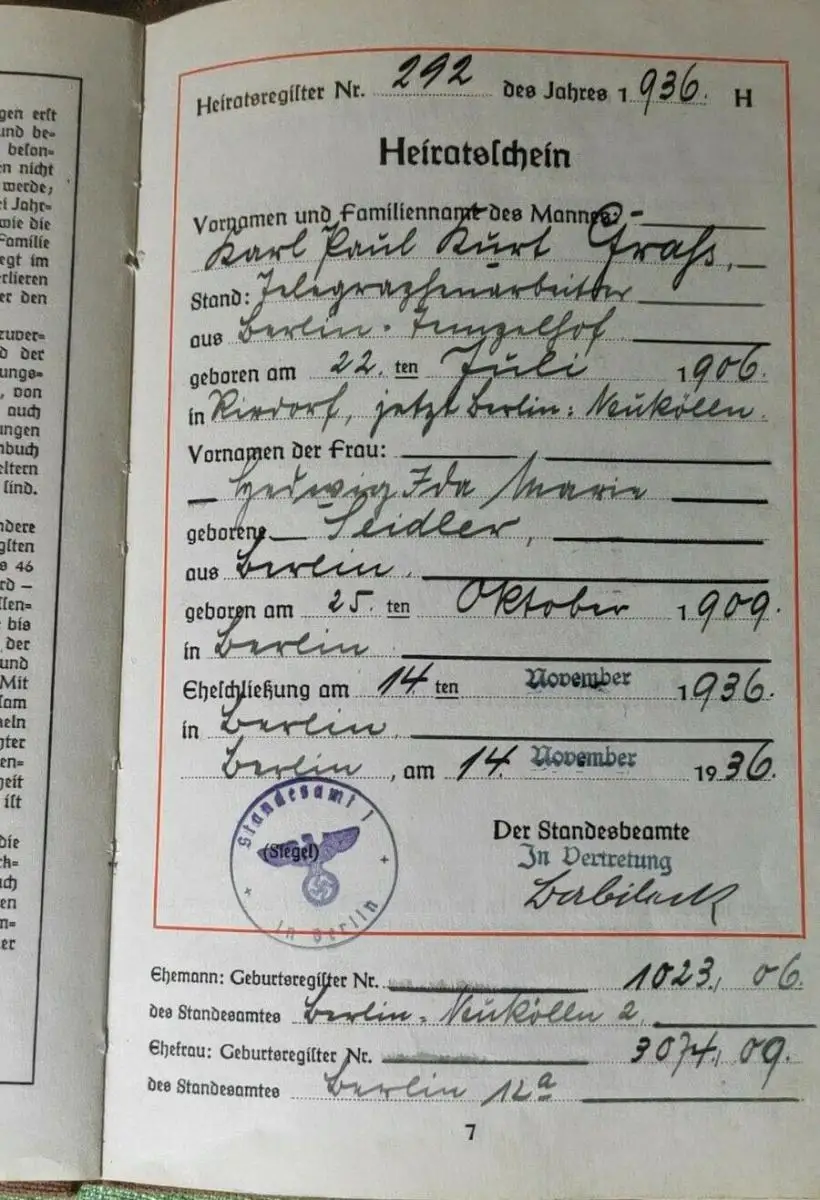 gen erst
und be-
beson-
en nicht
werde;
ei Jahr-
wie die
Familie
egt im
erlieren
er den
zuver-
d der
ungs-
, von
auch
ungen
nbuch
eltern
sind.
ndere
gsten
s 46
rd –
ssen-
bis
der
und
Mit
sam
eln
hter
en-
heit
ist
die
ck-
uch
en
n-
er
Heiratsregister Nr. 292 des Jahres 1936. H
Heiratsschein
Vornamen und Familienname des Mannes:
Karl Paul Kurt
Stand: Telegraphenarbeiter
aus Berlin-Tempelhof
geboren am 22. ten Juli 1906.
in Rixdorf, jetzt Berlin-Neukölln.
Vornamen der Frau:
Hedwig Ida Marie
geborene Seidler,
aus Berlin,
geboren am 25. ten Oktober 1909.
in Berlin
Eheschließung am 14 ten November 1936.
in Berlin.
Berlin, am 14. November 1936.
Standesamt 1
(Siegel)
in Berlin
Der Standesbeamte
In Vertretung
Ehemann: Geburtsregister Nr. 1023, 06.
des Standesamtes Berlin-Neukölln 2,
Ehefrau: Geburtsregister Nr. 3074, 09.
des Standesamtes Berlin 12a
7